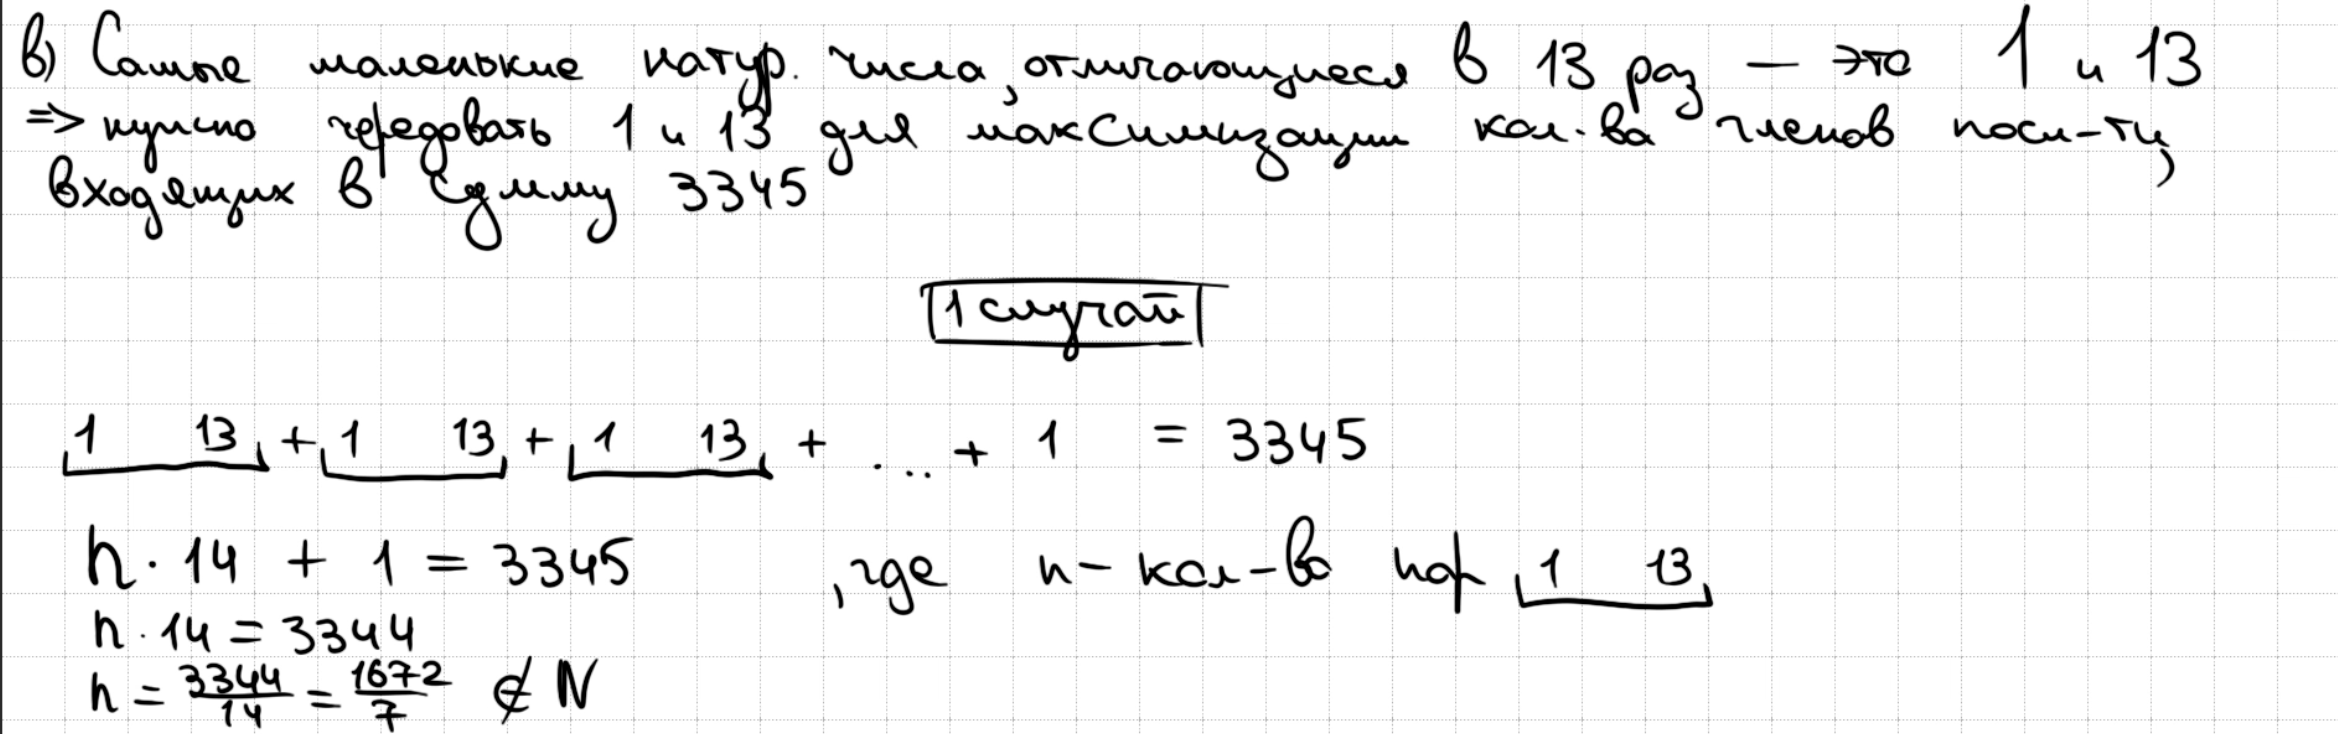 в) Самые маленькие натур. числа, отличающиеся в 13 раз — это 1 и 13
=> нужно чередовать 1 и 13 для максимизации кол-ва членов посл-ти,
входящих в сумму 3345
1 случай
1 13 + 1 13 + 1 13 + ... + 1 = 3345
n · 14 + 1 = 3345 , где n - кол-во пар 1 13
n · 14 = 3344
n = 3344/14 = 1672/7 ∉ N